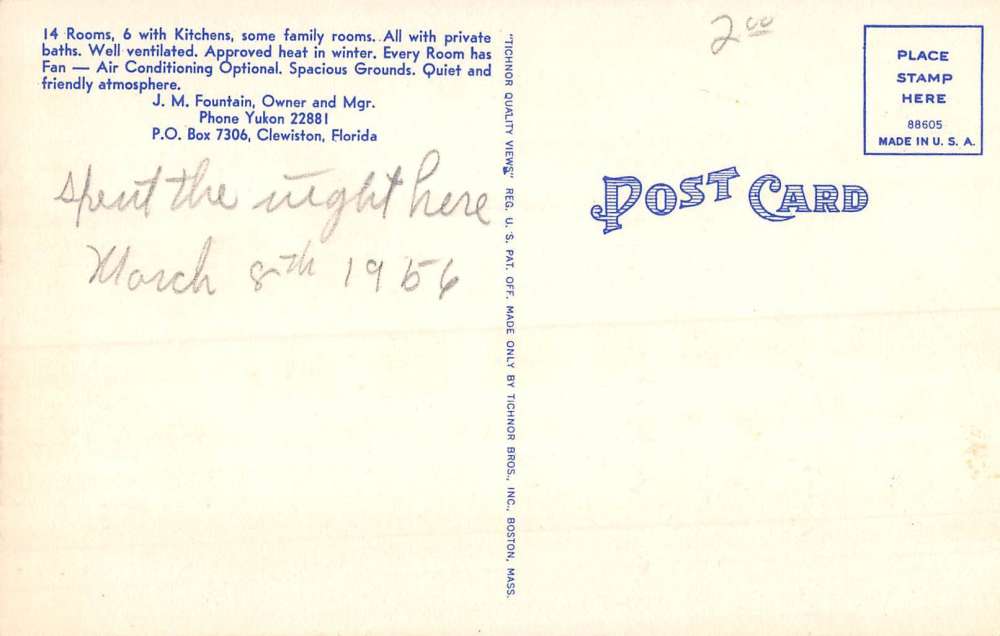 14 Rooms, 6 with Kitchens, some family rooms. All with private
baths. Well ventilated. Approved heat in winter. Every Room has
Fan — Air Conditioning Optional. Spacious Grounds. Quiet and
friendly atmosphere.
J. M. Fountain, Owner and Mgr.
Phone Yukon 22881
P.O. Box 7306, Clewiston, Florida
spent the night here
March 8th 1956
"TICHNOR QUALITY VIEWS" REG. U. S. PAT. OFF. MADE ONLY BY TICHNOR BROS., INC., BOSTON, MASS.
2.00
POST CARD
PLACE
STAMP
HERE
88605
MADE IN U. S. A.